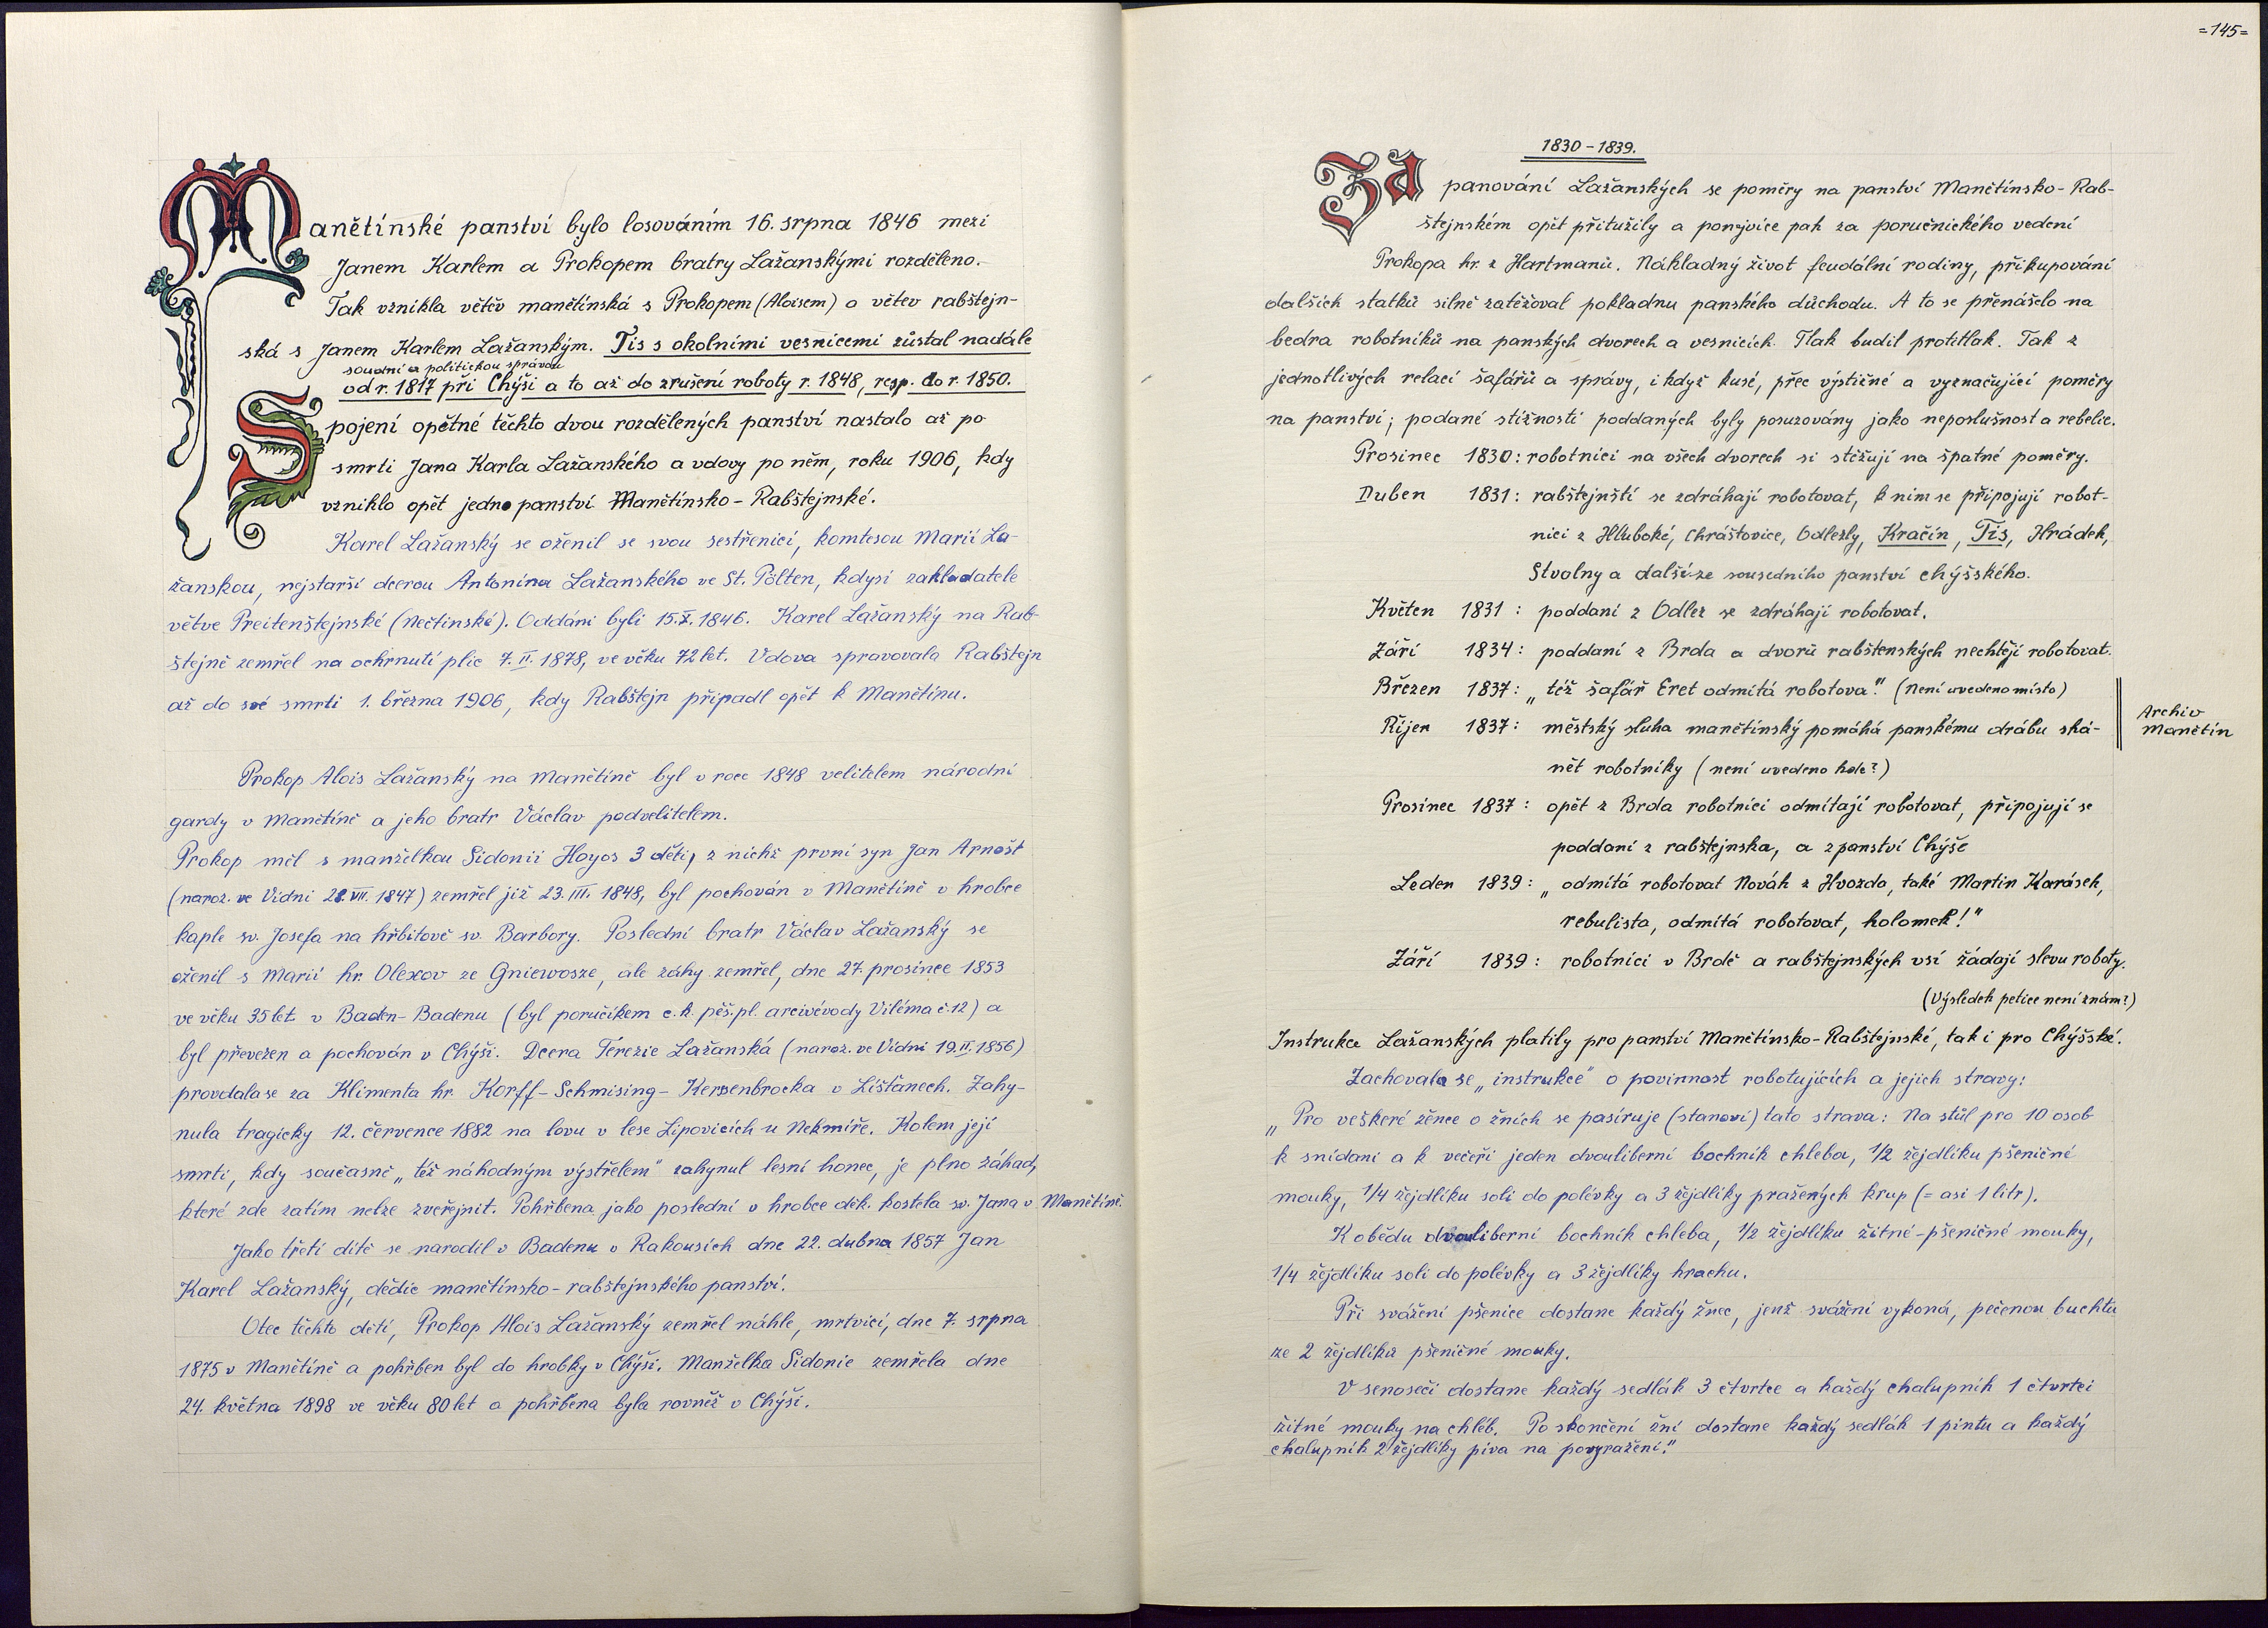 Manětínské panství bylo losováním 16. srpna 1846 mezi
Janem Karlem a Prokopem bratry Lažanskými rozděleno.
Tak vznikla větěv manětínská s Prokopem (Aloisem) a větev rabštejn-
ská s Janem Karlem Lažanským. Tis s okolními vesnicemi zůstal nadále
soudní a politickou správou
od r. 1817 při Chýši a to až do zrušení roboty r. 1848, resp. do r. 1850.
Spojení opětné těchto dvou rozdělených panství nastalo až po
smrti Jana Karla Lažanského a vdovy po něm, roku 1906, kdy
vzniklo opět jedno panství Manětínsko - Rabštejnské.
Karel Lažanský se oženil se svou sestřenicí, komtesou Marií La-
žanskou, nejstarší dcerou Antonína Lažanského ve St. Pölten, kdysi zakladatele
větve Preitenštejnské (Nečtinské). Oddáni byli 15.X. 1846. Karel Lažanský na Rab-
štejně zemřel na ochrnutí plic 7. II. 1878, ve věku 72 let. Vdova spravovala Rabštejn
až do své smrti 1. března 1906, kdy Rabštejn připadl opět k Manětínu.
Prokop Alois Lažanský na Manětíně byl v roce 1848 velitelem národní
gardy v Manětíně a jeho bratr Václav podvelitelem.
Prokop měl s manželkou Sidonii Hoyos 3 děti, z nichž první syn Jan Arnošt
(naroz. ve Vídni 28. VII. 1847) zemřel již 23. III. 1848, byl pochován v Manětíně v hrobce
kaple sv. Josefa na hřbitově sv. Barbory. Poslední bratr Václav Lažanský se
oženil s Marií hr. Olexov ze Gniewosze, ale záhy zemřel, dne 27. prosince 1853
ve věku 35 let v Baden-Badenu (byl poručíkem c. k. pěš. pl. arcivévody Viléma č. 12) a
byl převezen a pochován v Chýši. Dcera Terezie Lažanská (naroz. ve Vídni 19. II. 1856)
provdala se za Klimenta hr. Korff - Schmising - Kerssenbrocka v Líšťanech. Zahy-
nula tragicky 12. července 1882 na lovu v lese Lipovicích u Nekmíře. Kolem její
smrti, kdy současně „též náhodným výstřelem" zahynul lesní honec, je plno záhad,
které zde zatím nelze zveřejnit. Pohřbena jako poslední v hrobce děk. kostela sv. Jana v Manětíně.
Jako třetí dítě se narodil v Badenu v Rakousích dne 22. dubna 1857 Jan
Karel Lažanský, dědic manětínsko - rabštejnského panství.
Otec těchto dětí, Prokop Alois Lažanský zemřel náhle, mrtvicí, dne 7. srpna
1875 v Manětíně a pohřben byl do hrobky v Chýši. Manželka Sidonie zemřela dne
24. května 1898 ve věku 80 let a pohřbena byla rovněž v Chýši.
=145=
1830 - 1839.
Za panování Lažanských se poměry na panství Manětínsko - Rab-
štejnském opět přitužily a ponejvíce pak za poručnického vedení
Prokopa hr. z Hartmanů. Nákladný život feudální rodiny, přikupování
dalších statků silně zatěžoval pokladnu panského důchodu. A to se přenášelo na
bedra robotníků na panských dvorech a vesnicích. Tlak budil protitlak. Tak z
jednotlivých relací šafářů a správy, i když kusé, přec výstižné a vyznačující poměry
na panství; podané stížnosti poddaných byly posuzovány jako neposlušnost a rebelie.
Prosinec 1830: robotníci na všech dvorech si stěžují na špatné poměry.
Duben 1831: rabštejnští se zdráhají robotovat, k nim se připojují robot-
níci z Hluboké, Chrášťovice, Odlezly, Kračín, Tis, Hrádek,
Stvolny a další ze sousedního panství chýšského.
Květen 1831 : poddaní z Odlez se zdráhají robotovat.
Září 1834 : poddaní z Brda a dvorů rabštenských nechtějí robotovat.
Březen 1837: „též šafář Eret odmítá robotova." (není uvedeno místo)
Říjen 1837: městský sluha manětínský pomáhá panskému drábu shá-
nět robotníky (není uvedeno kde?)
Archiv
Manětín
Prosinec 1837 : opět z Brda robotníci odmítají robotovat, připojují se
poddaní z rabštejnska, a z panství Chýše
Leden 1839 : „odmítá robotovat Novák z Hvozda, také Martin Karásek,
rebulista, odmítá robotovat, holomek!"
Září 1839 : robotníci v Brdě a rabštejnských vsí žádají slevu roboty.
(Výsledek petice není znám?)
Instrukce Lažanských platily pro panství Manětínsko - Rabštejnské, tak i pro Chýšské.
Zachovala se „instrukce" o povinnost robotujících a jejich stravy:
„Pro veškeré žence o žních se pasíruje (stanoví) tato strava: Na stůl pro 10 osob
k snídani a k večeři jeden dvouliberní bochník chleba, 1/2 žejdlíku pšeničné
mouky, 1/4 žejdlíku soli do polévky a 3 žejdlíky pražených krup (= asi 1 litr).
K obědu dvouliberní bochník chleba, 1/2 žejdlíku žitné - pšeničné mouky,
1/4 žejdlíku soli do polévky a 3 žejdlíky hrachu.
Při svážení pšenice dostane každý žnec, jenž svážení vykoná, pečenou buchtu
ze 2 žejdlíků pšeničné mouky.
V senoseči dostane každý sedlák 3 čtvrtce a každý chalupník 1 čtvrtci
žitné mouky na chléb. Po skončení žní dostane každý sedlák 1 pintu a každý
chalupník 2 žejdlíky piva na povyražení."